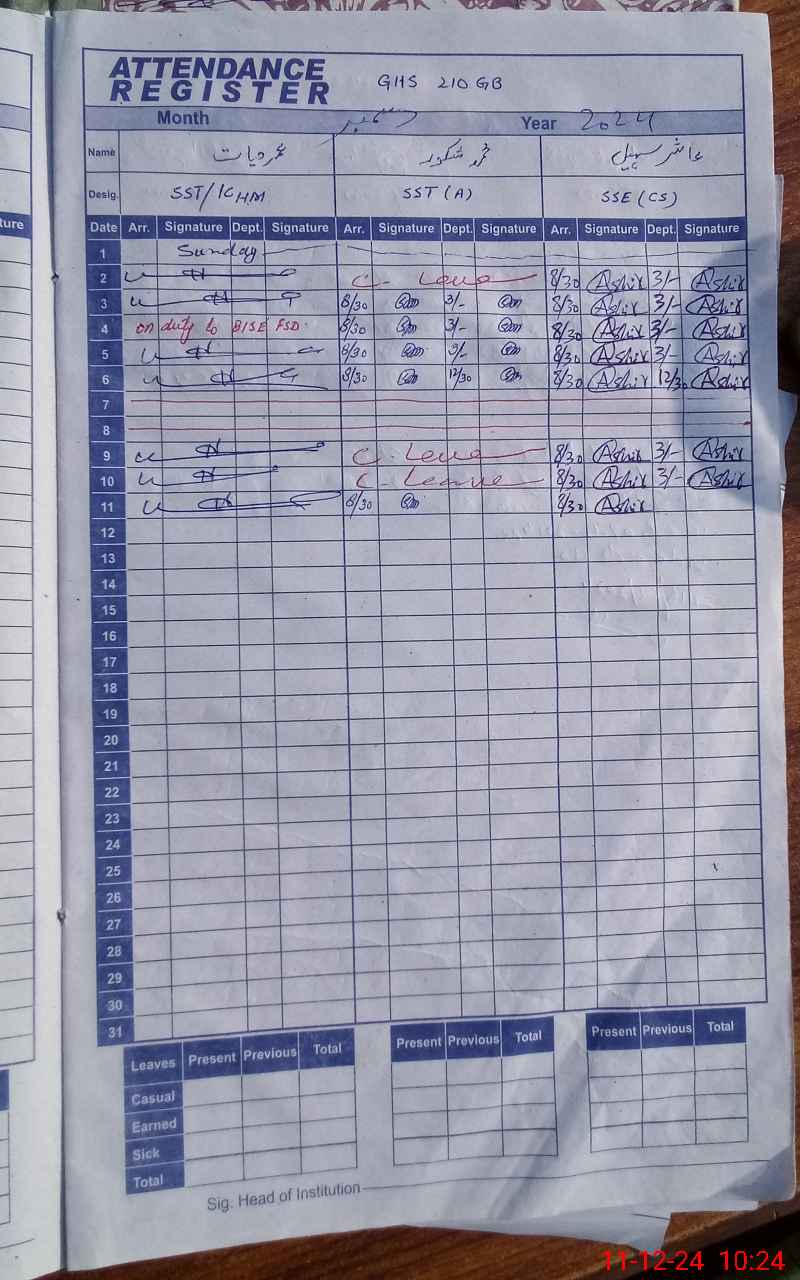 ATTENDANCE REGISTER GHS 210 GB
Month دسمبر Year 2024
Name عمر حیات محمد شکور عاشر سہیل
Desig. SST/ICHM SST (A) SSE (CS)
Date Arr. Signature Dept. Signature Arr. Signature Dept. Signature Arr. Signature Dept. Signature
1 Sunday
2 C- Leave 8/30 Ashir 3/- Ashir
3 8/30 3/- 8/30 Ashir 3/- Ashir
4 on duty to BISE FSD. 8/30 3/- 8/30 Ashir 3/- Ashir
5 8/30 3/- 8/30 Ashir 3/- Ashir
6 8/30 12/30 8/30 Ashir 12/30 Ashir
7
8
9 C- Leave 8/30 Ashir 3/- Ashir
10 C- Leave 8/30 Ashir 3/- Ashir
11 8/30 8/30 Ashir
12
13
14
15
16
17
18
19
20
21
22
23
24
25
26
27
28
29
30
31
Leaves Present Previous Total Present Previous Total Present Previous Total
Casual
Earned
Sick
Total
Sig: Head of Institution
11-12-24 10:24